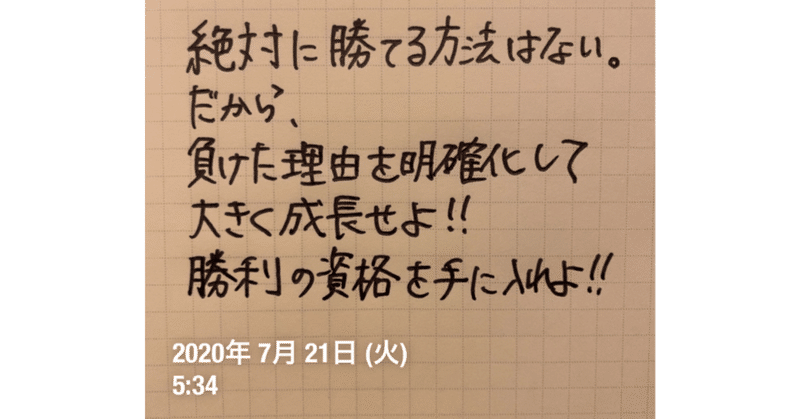 絶対に勝てる方法はない。
だから、
負けた理由を明確化して
大きく成長せよ!!
勝利の資格を手に入れよ!!
2020年 7月 21日 (火)
5:34